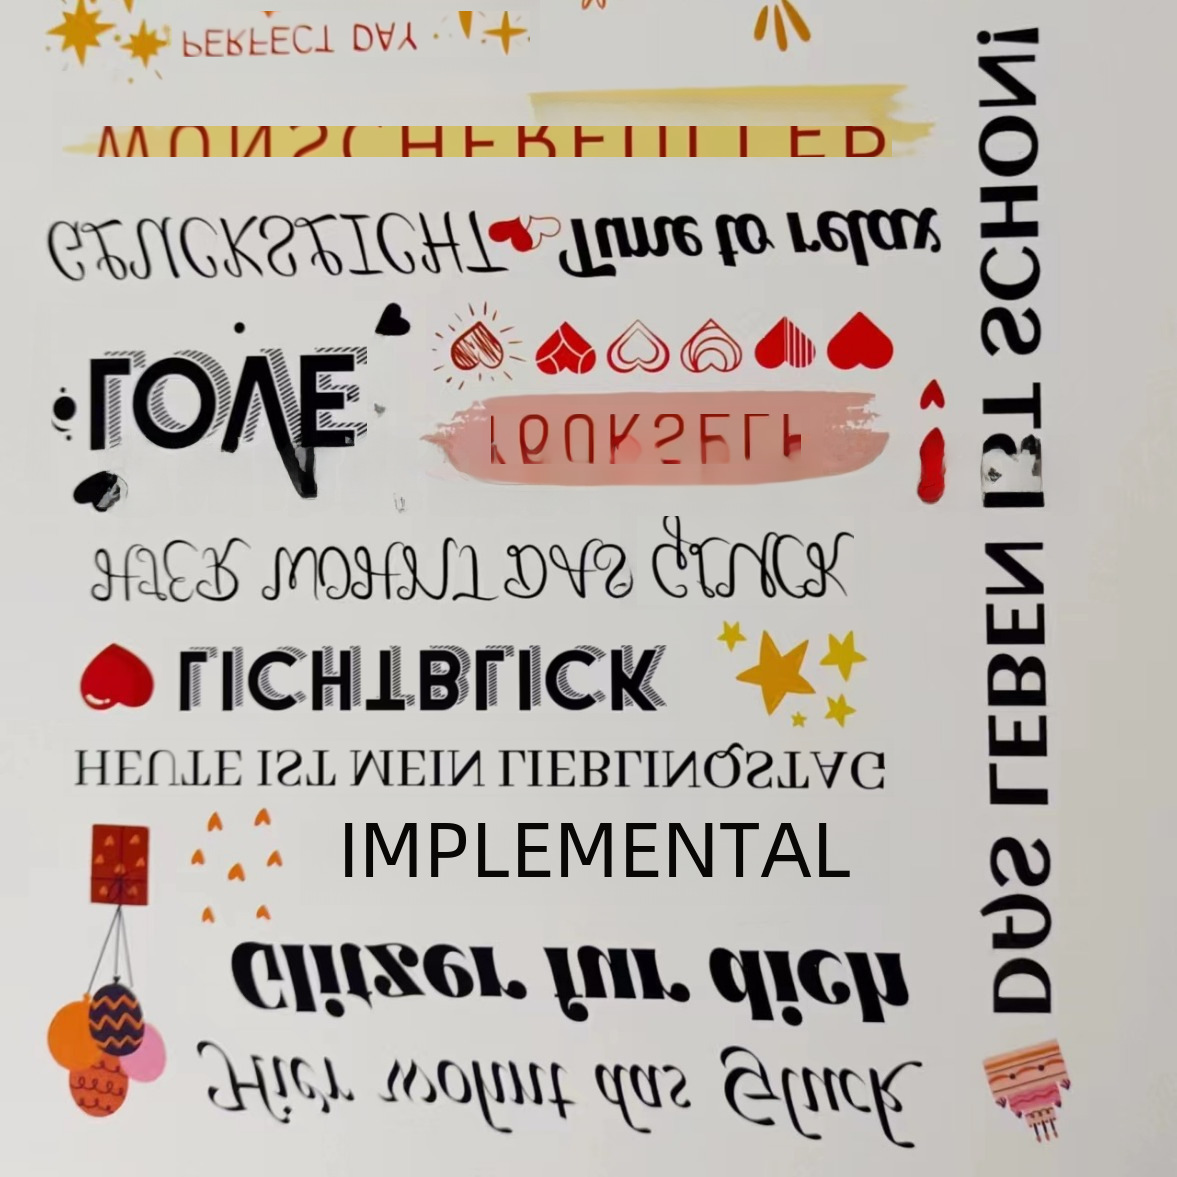 PERFECT DAY
WUNSCHERFULLER
GLUCKSLICHT Time to relax
LOVE
YOURSELF
HIER WOHNT DAS GLUCK
LICHTBLICK
HEUTE IST MEIN LIEBLINGSTAG
IMPLEMENTAL
Glitzer fur dich
Hier wohnt das Gluck
DAS LEBEN IST SCHON!